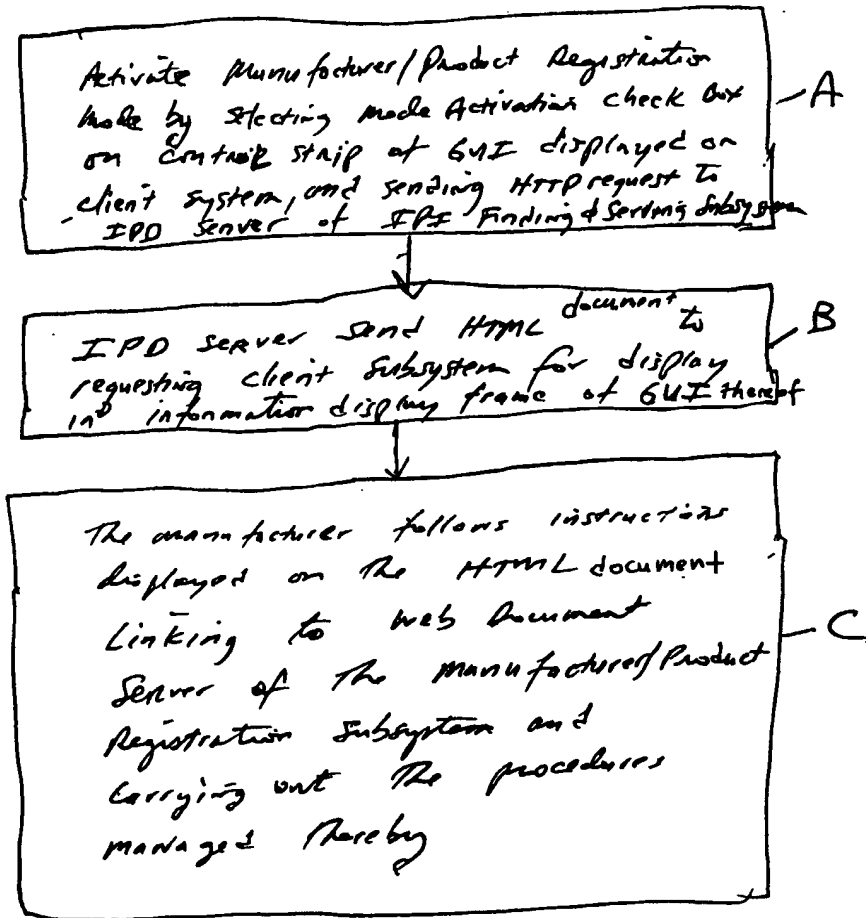 Activate Manufacturer/Product Registration
Mode by selecting Mode Activation check Box
on control strip of GUI displayed on
client system, and sending HTTP request to
IPD server of IPI Finding & Serving Subsystem
A
IPD server send HTML document to
requesting client subsystem for display
in information display frame of GUI thereof
B
The manufacturer follows instructions
displayed on the HTML document
Linking to web Document
Server of the manufacturer/Product
Registration Subsystem and
carrying out the procedures
managed thereby
C